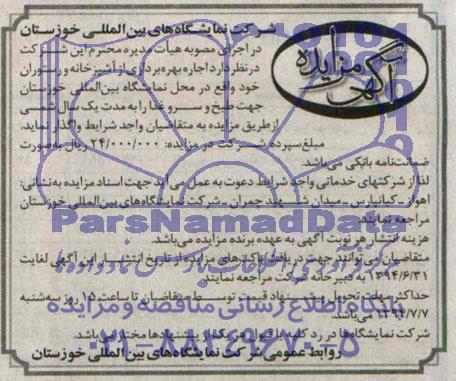 شرکت نمایشگاه‌های بین‌المللی خوزستان
آگهی مزایده
در اجرای مصوبه هیأت مدیره محترم این شرکت
در نظر دارد اجاره بهره‌برداری از آشپزخانه و رستوران
خود واقع در محل نمایشگاه بین‌المللی خوزستان
جهت طبخ و سرو غذا را به مدت یک سال شمسی
از طریق مزایده به متقاضیان واجد شرایط واگذار نماید.
مبلغ سپرده شرکت در مزایده: ۲۴/۰۰۰/۰۰۰ ریال به‌صورت
ضمانت‌نامه بانکی می‌باشد.
لذا از شرکتهای خدماتی واجد شرایط دعوت به عمل می‌آید جهت اسناد مزایده به نشانی:
اهواز ـ کیانپارس ـ میدان شهید چمران ـ شرکت نمایشگاه‌های بین‌المللی خوزستان
مراجعه نمایند.
ParsNamadData
هزینه انتشار هر نوبت آگهی به عهده برنده مزایده می‌باشد.
متقاضیان می‌توانند جهت دریافت پاکت‌های مزایده از تاریخ انتشار این آگهی لغایت
۱۳۹۴/۶/۳۱ به دبیرخانه شرکت مراجعه نمایند.
حداکثر مهلت تحویل پیشنهاد قیمت توسط متقاضیان تا ساعت ۱۵ روز سه‌شنبه
۱۳۹۴/۷/۷ می‌باشد.
پایگاه اطلاع رسانی مناقصه و مزایده
شرکت نمایشگاه‌ها در رد کلیه یا قبول هر یک از پیشنهادها مختار می‌باشد.
روابط عمومی شرکت نمایشگاه‌های بین‌المللی خوزستان
۰۲۱-۸۸۳۴۹۶۷۰-۵